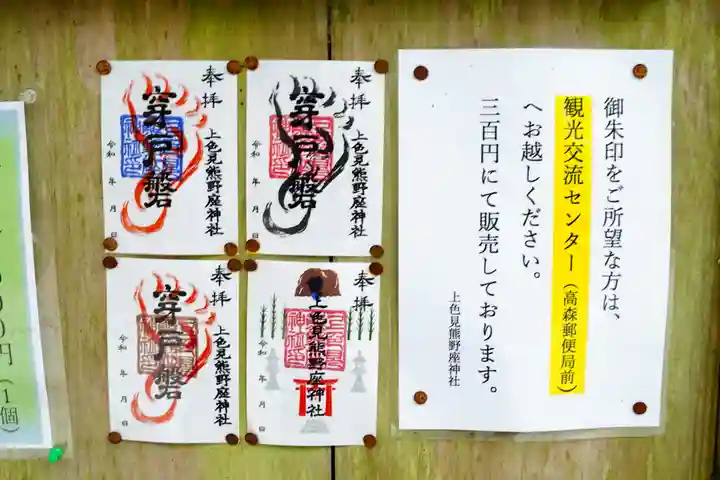 御朱印をご所望な方は、
観光交流センター(高森郵便局前)
へお越しください。
三百円にて販売しております。
上色見熊野座神社
奉拝
穿戸磐
上色見熊野座神社
令和 年 月 日
奉拝
穿戸磐
上色見熊野座神社
令和 年 月 日
奉拝
穿戸磐
上色見熊野座神社
令和 年 月 日
奉拝
上色見熊野座神社
令和 年 月 日
円(1個)